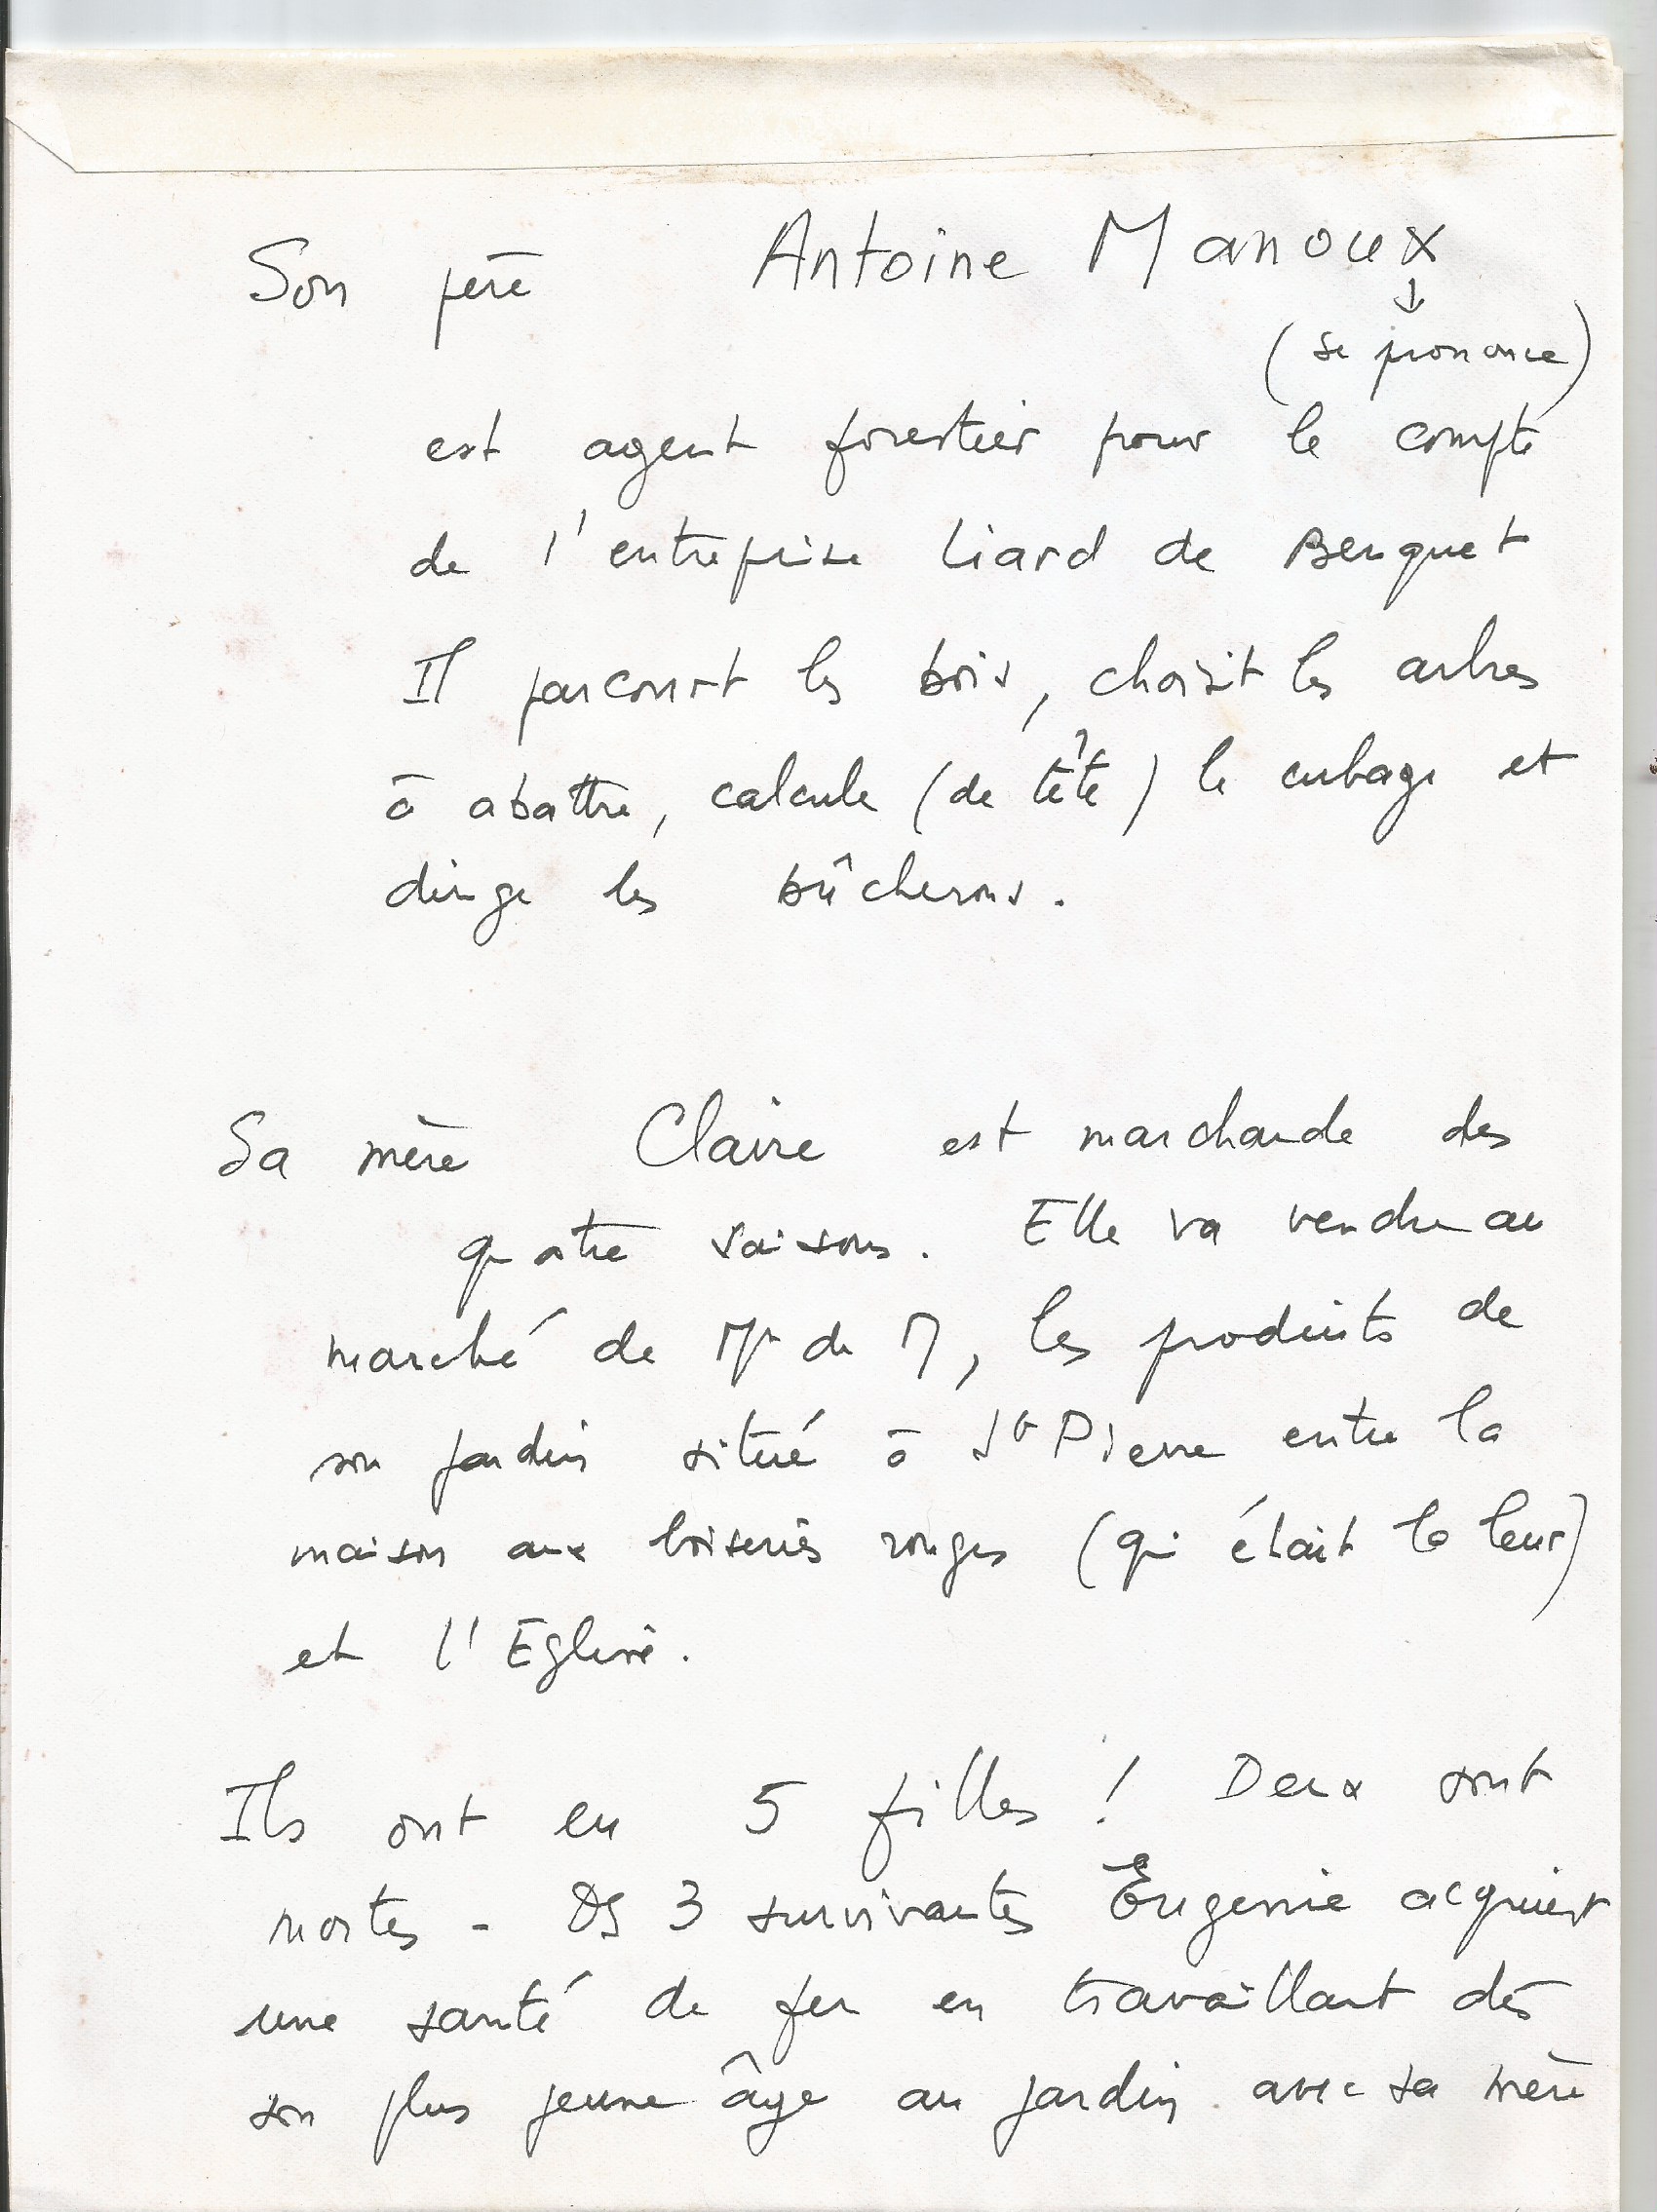 Son père Antoine Manoux
↓
(se prononce)
est agent forestier pour le compte
de l'entreprise Liard de Benquet
Il parcourt les bois, choisit les arbres
à abattre, calcule (de tête) le cubage et
dirige les bûcherons.
Sa mère Claire est marchande des
quatre saisons. Elle va vendre au
marché de Mt de M, les produits de
son jardin situé à St Pierre entre la
maison aux boiseries rouges (qui était la leur)
et l'Eglise.
Ils ont eu 5 filles ! Deux sont
mortes - Des 3 survivantes Eugenie acquiert
une santé de fer en travaillant dès
son plus jeune âge au jardin avec sa mère